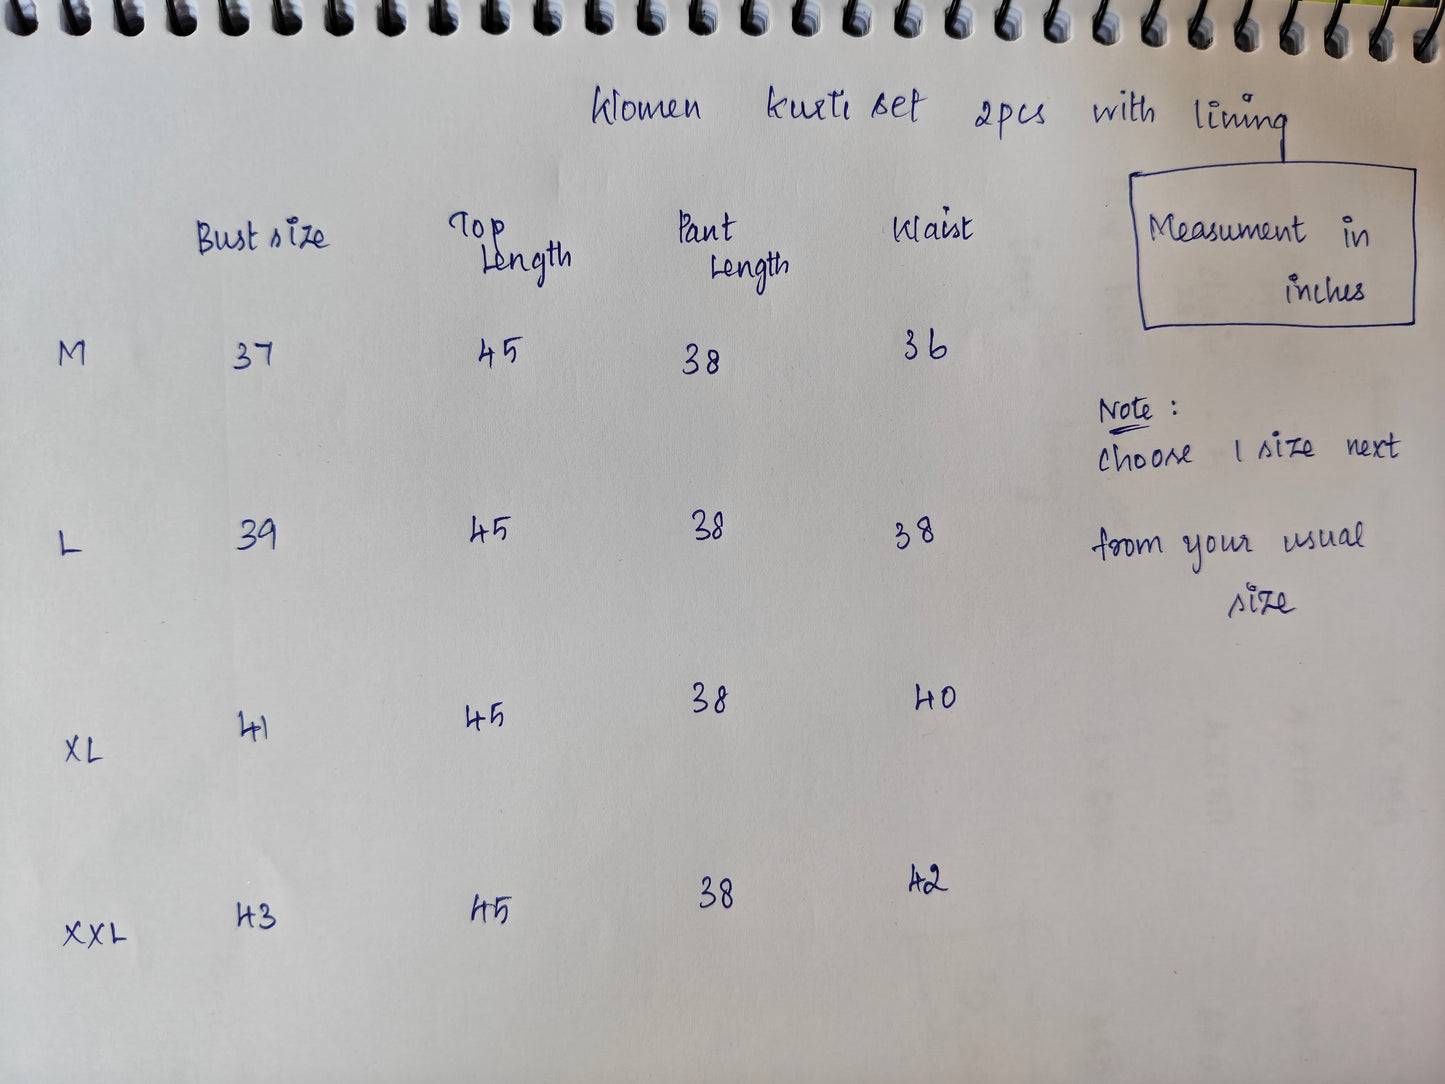 Women kurti set 2pcs with lining
Measument in
inches
Bust size Top Length Pant Length Waist
M 37 45 38 36
L 39 45 38 38
XL 41 45 38 40
XXL 43 45 38 42
Note :
Choose 1 size next
from your usual
size